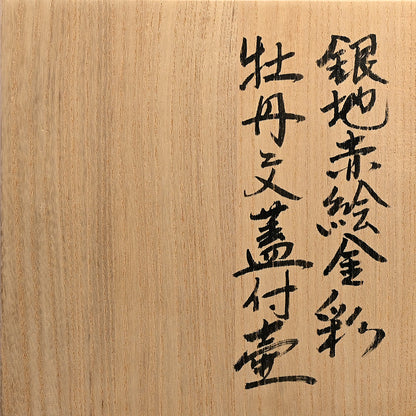 銀地赤絵金彩
牡丹文蓋付壷